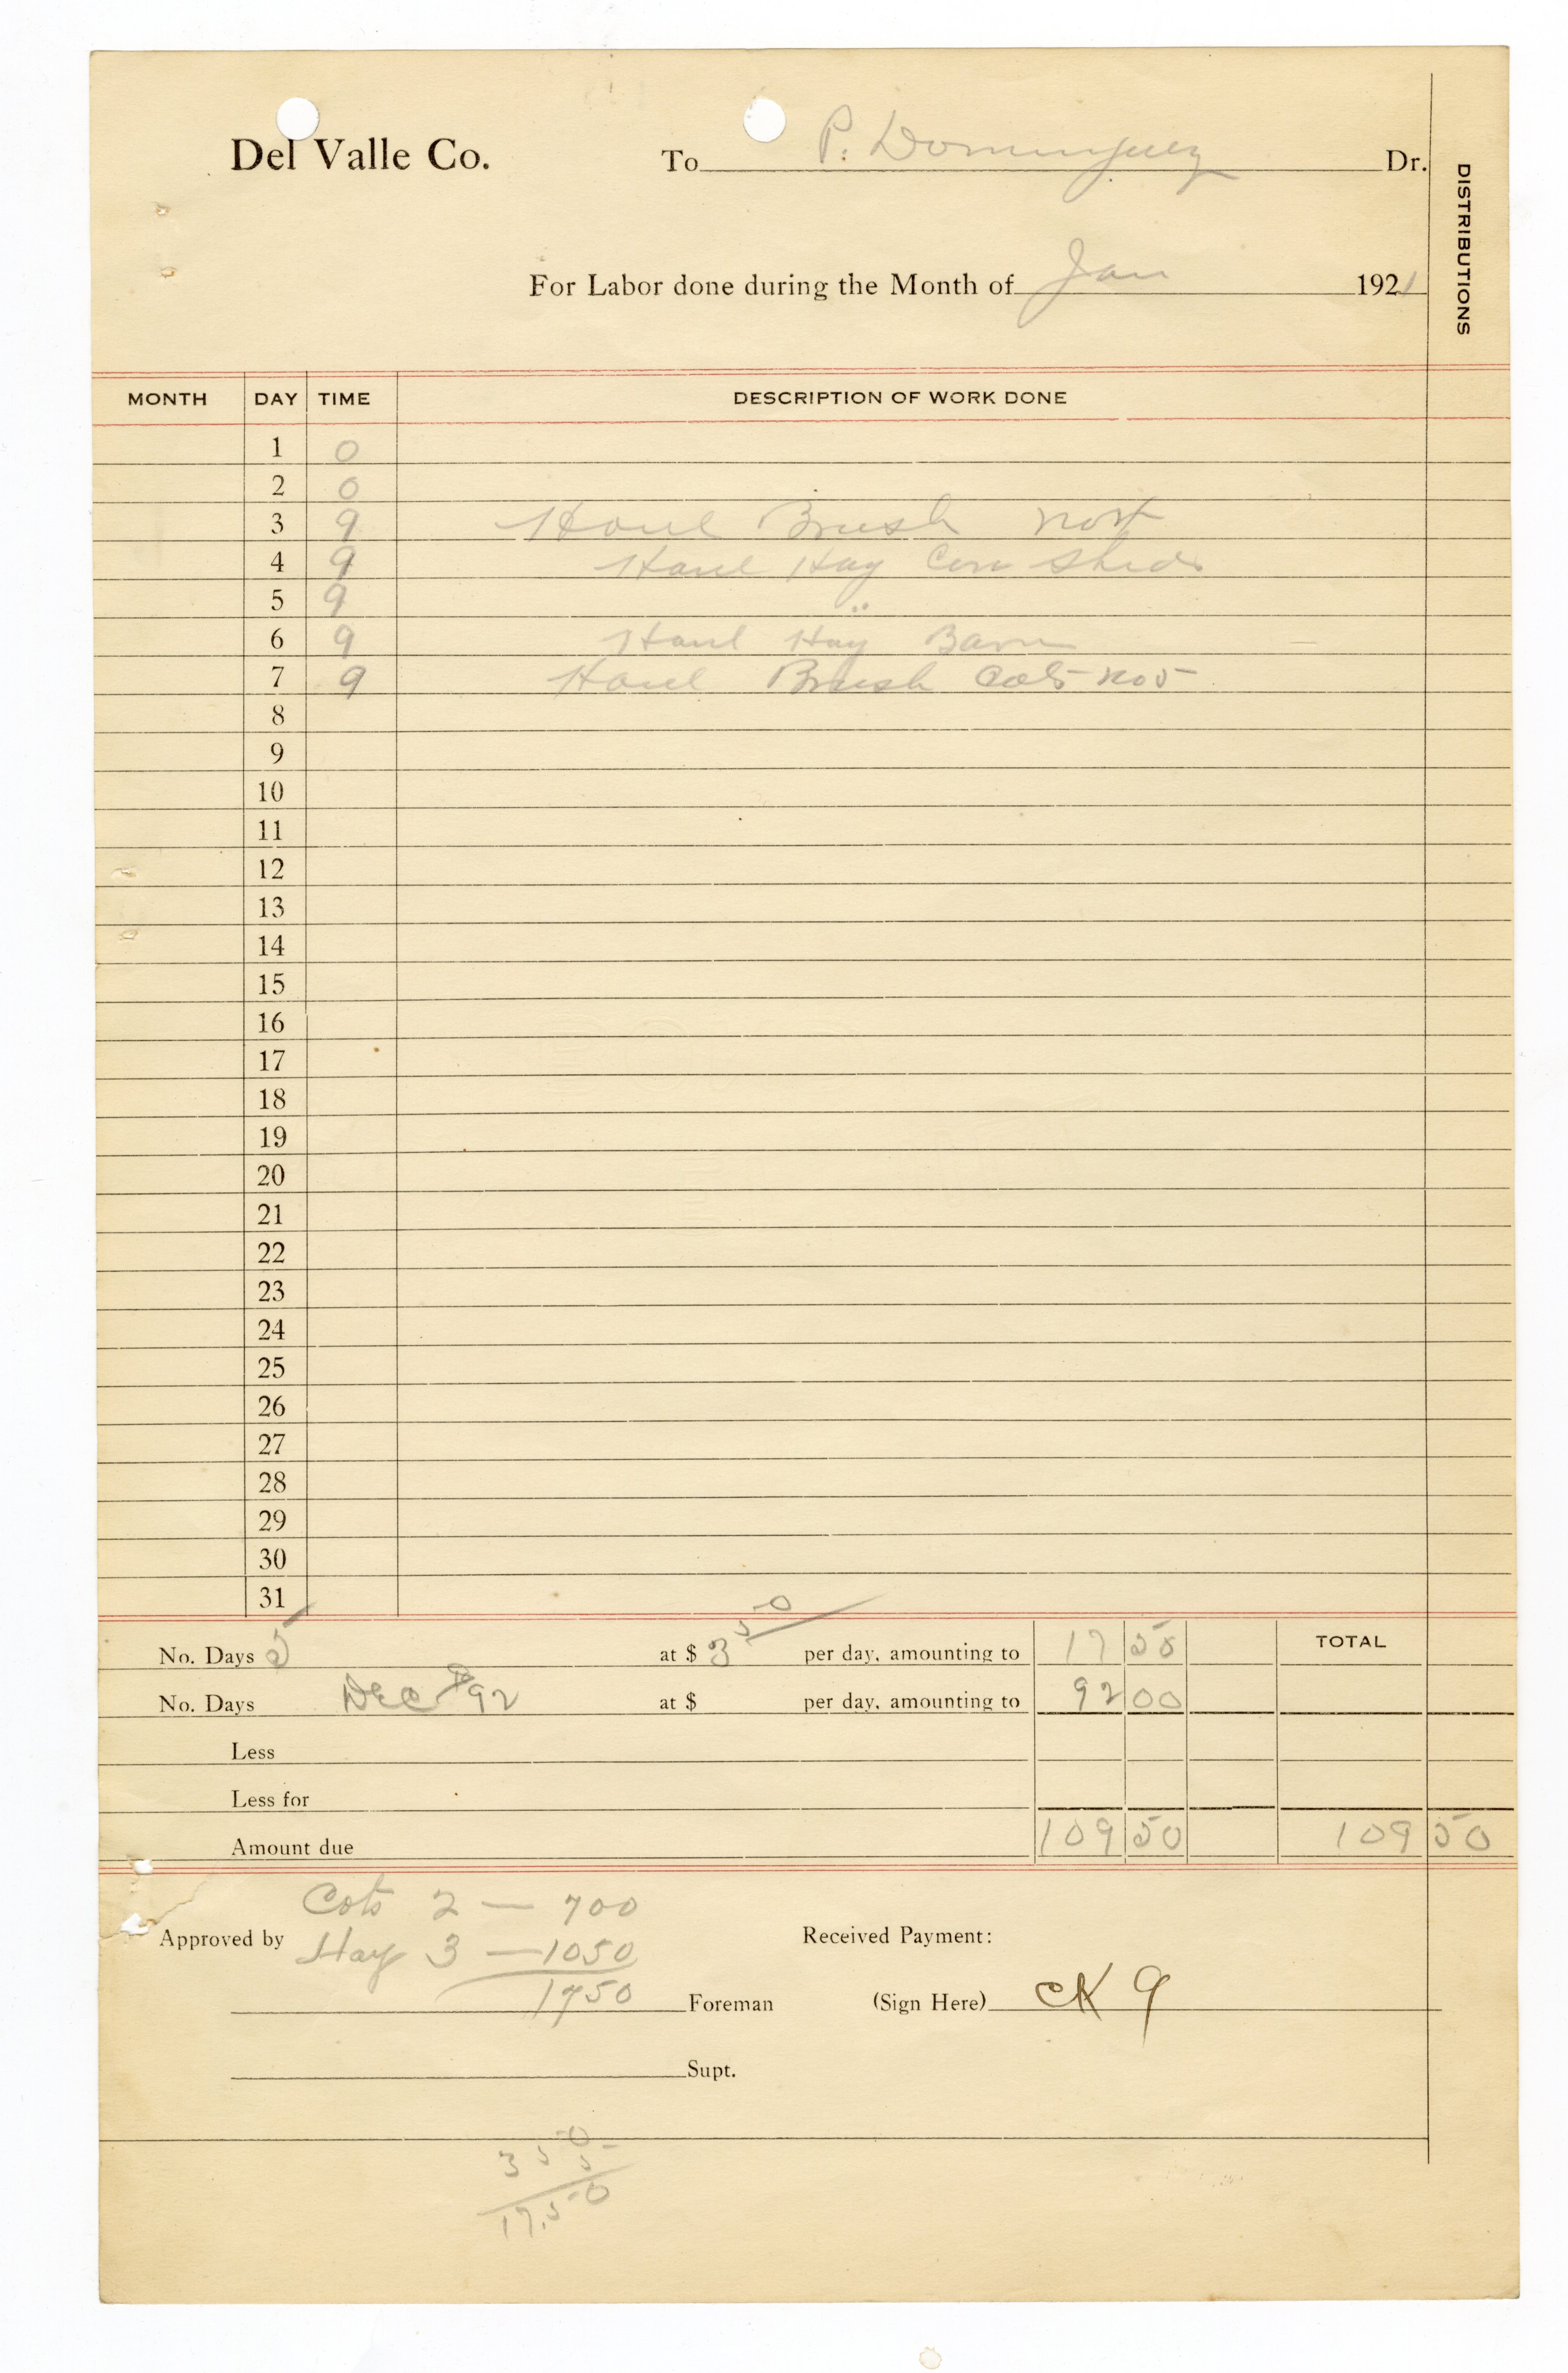 Del Valle Co. To P. Dominguez Dr.
DISTRIBUTIONS
For Labor done during the Month of Jan 1921
MONTH DAY TIME DESCRIPTION OF WORK DONE
1 0
2 0
3 9 Haul Brush
4 9 Haul Hay Cow Sheds
5 9 "
6 9 Haul Hay Barn
7 9 Haul Brush Cots No 5
8
9
10
11
12
13
14
15
16
17
18
19
20
21
22
23
24
25
26
27
28
29
30
31
No. Days 5 at $ 3 50 per day, amounting to 17 50 TOTAL
No. Days Dec 92 at $ per day, amounting to 92 00
Less
Less for
Amount due 109 50 109 50
Cots 2 — 700
Approved by Hay 3 — 1050 Received Payment:
1750 Foreman (Sign Here) CK 9
Supt.
3 50
5
17.50